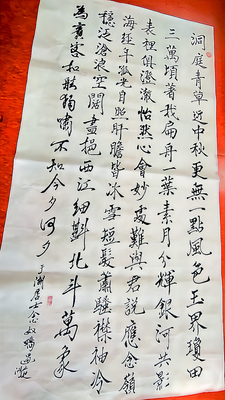 洞庭青草近中秋更無一點風色玉界瓊田
三萬頃著我扁舟一葉素月分輝銀河共影
表裡俱澄澈怡然心會妙處難與君說應念嶺
海經年孤光自照肝膽皆冰雪短髮蕭騷襟袖冷
穩泛滄浪空闊盡挹西江細斟北斗萬象
為賓客扣舷獨嘯不知今夕何夕
于湖居士念奴嬌過